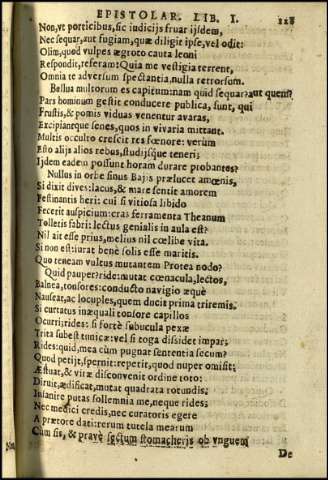 EPISTOLAR. LIB. I.
Non,vt porticibus, sic iudicijs fruar ijsdem,
Nec sequar,aut fugiam,quæ diligit ipse,vel odit:
Olim,quod vulpes ægroto cauta leoni
Respondit,referam: Quia me vestigia terrent,
Omnia te adversum spectantia,nulla retrorsum.
Bellua multorum es capitum:nam quid sequar?aut quem?
Pars hominum gestit conducere publica, sunt, qui
Frustis,& pomis viduas venentur avaras,
Excipiantque senes,quos in vivaria mittant.
Multis occulto crescit res fœnore: verùm
Esto alijs alios rebus,studijsque teneri;
Ijdem eadem possunt horam durare probantes?
Nullus in orbe sinus Baijs prælucet amœnis,
Si dixit dives:lacus,& mare sentit amorem
Festinantis heri: cui si vitiosa libido
Fecerit auspicium:cras ferramenta Theanum
Tolletis fabri: lectus genialis in aula est?
Nil ait esse prius,melius nil cœlibe vita.
Si non est:iurat benè solis esse maritis.
Quo teneam vultus mutantem Protea nodo?
Quid pauper?ride:mutat cœnacula,lectos,
Balnea,tonsores:conducto navigio æquè
Nauseat,ac locuples,quem ducit prima triremis.
Si curtatus inæquali tonsore capillos
Occurri;rides: si fortè subucula pexæ
Trita subest tunicæ:vel si toga dissidet impar;
Rides:quid,mea cùm pugnat sententia secum?
Quod petijt,spernit:repetit,quod nuper omisit;
Æstuat,& vitæ disconvenit ordine toto:
Diruit,ædificat,mutat quadrata rotundis;
Insanire putas sollemnia me,neque rides;
Nec medici credis,nec curatoris egere
A prætore dati:rerum tutela mearum
Cùm sis, & pravè sectum stomacheris ob vnguem
De